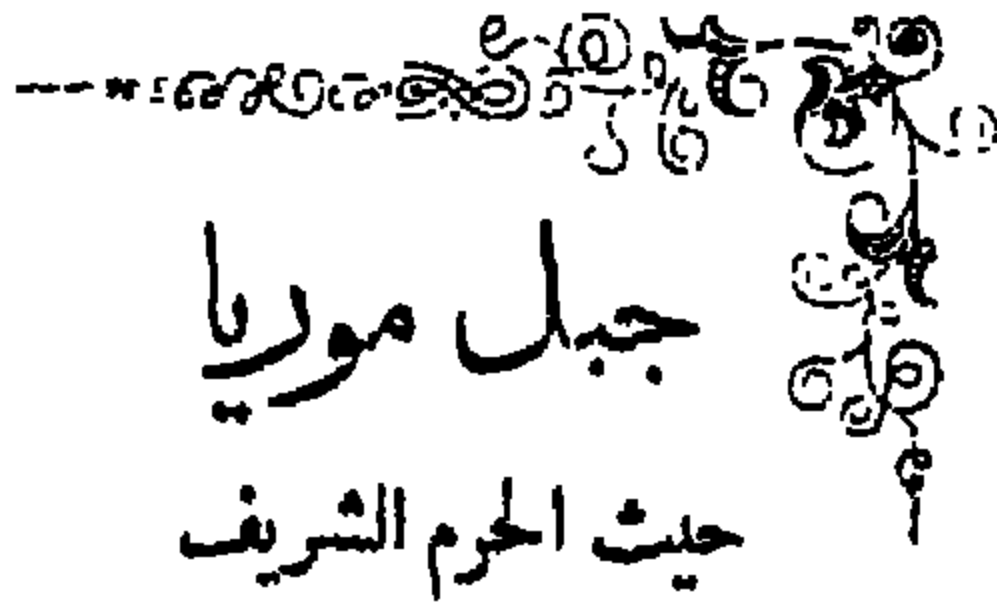 جبل موريا
حيث الحرم الشريف